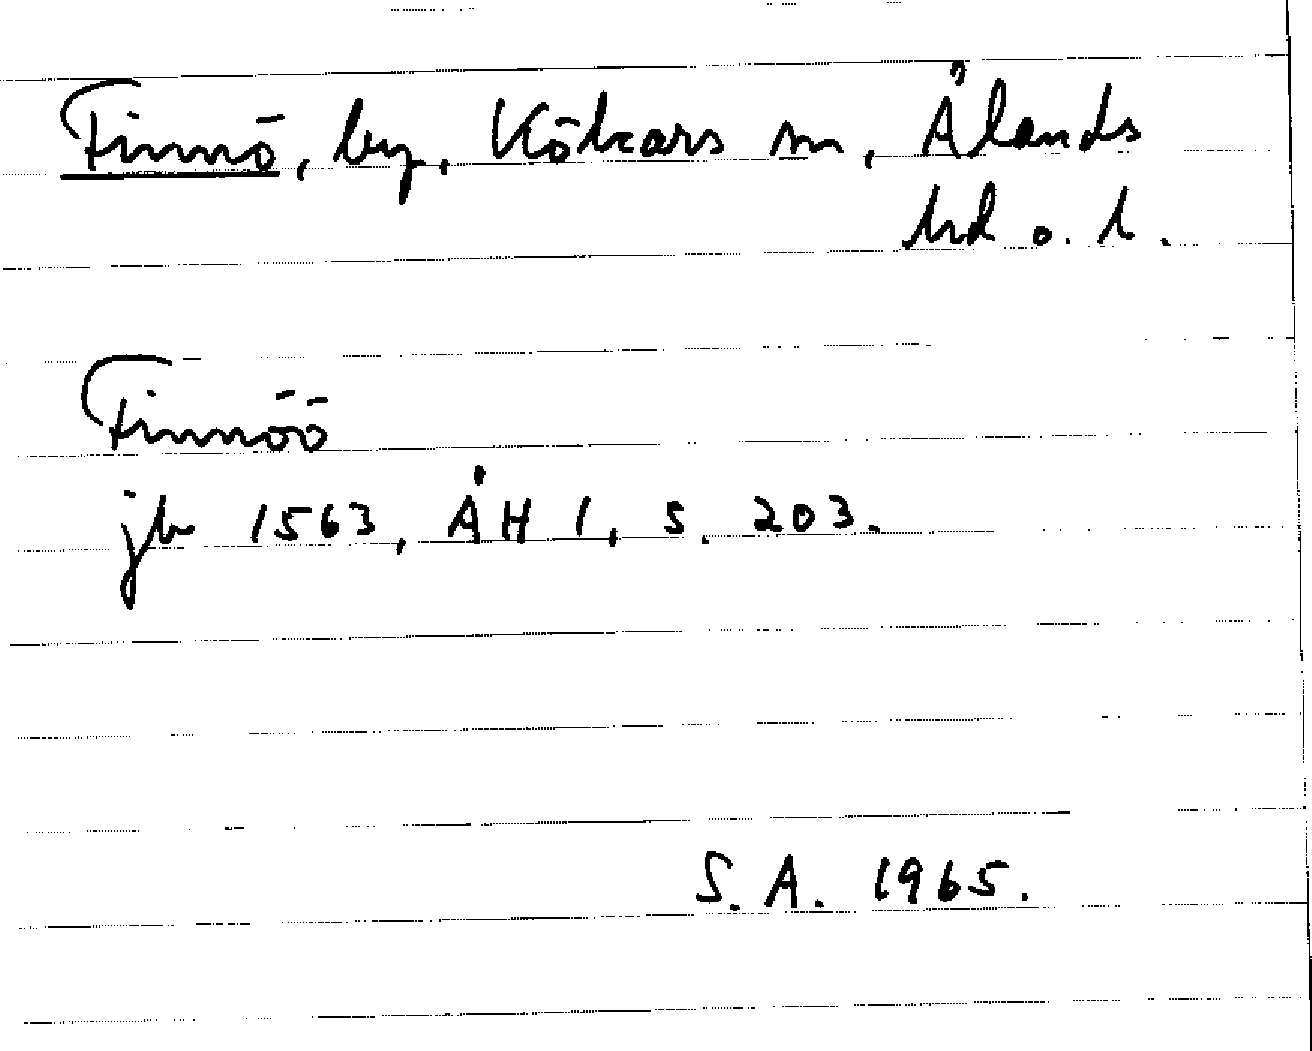 Finnö, by, Kökars sn, Ålands
hd o. l.
Finnöö
jb 1563, ÅH 1, s. 203.
S. A. 1965.